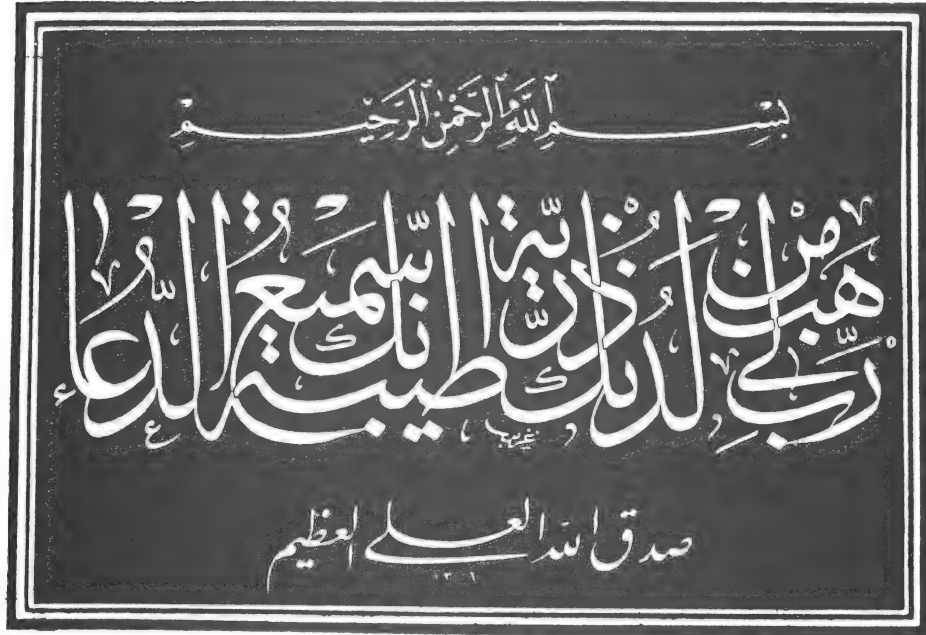 بِسْمِ اللّٰهِ الرَّحْمٰنِ الرَّحِيْمِ
رَبِّ هَبْ لِي مِنْ لَدُنْكَ ذُرِّيَّةً طَيِّبَةً اِنَّكَ سَمِيْعُ الدُّعَاءِ
صدق الله العلي العظيم